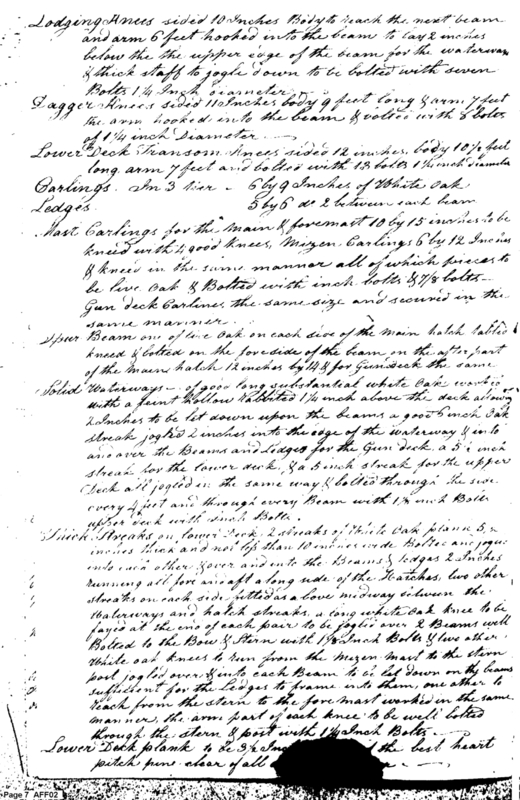 Lodging Knees sided 10 Inches Body to reach the next beam
and arm 6 feet hooked into the beam to lay 2 inches
below the the upper edge of the beam for the waterway
& thick staff to jogle down to be bolted with seven
Bolts 1 1/4 Inch diameter
Dagger Knees sided 11 Inches body 9 feet long & arm 7 feet
the arm hooked into the beam & bolted with 8 bolts
of 1 1/4 inch Diameter
Lower Deck Transom Knees sided 12 inches, body 10 1/2 feet
long arm 7 feet and bolted with 13 bolts inch diameter
Carlings. In 3 tier - 6 by 9 Inches of White Oak
Ledges. 5 by 6 do 2 between each beam
Mast Carlings for the Main & foremast 10 by 15 inches to be
kneed with 4 good knees, Mizen Carlings 6 by 12 Inches
& kneed in the same manner all of which pieces to
be live Oak & Bolted with inch bolts & 7/8 bolts
Gun deck Carlines the same size and secured in the
same manner
Spur Beam one of live Oak on each side of the Main hatch tabled
kneed & bolted on the fore side of the beam on the after part
of the main hatch 12 inches by 14 & for Gundeck the same
Solid Waterways - of good long substantial white Oak worked
with a faint hollow Rabbited 1 1/4 inch above the deck allow
2 Inches to be let down upon the beams a good 6 inch Oak
streak jogled 2 inches into the edge of the waterway & into
and over the Beams and Ledges for the Gun deck, a 5 inch
streak for the lower deck, & a 5 inch streak for the upper
Deck all jogled in the same way & bolted through the side
every 4 feet and through every Beam with inch Bolts
upper deck with Inch Bolts.
Thick Streaks on lower Deck 2 streaks of White Oak plank 5
inches thick and not less than 10 inches wide Bolted and jogled
into each other & over and into the Beams & ledges 2 Inches
running all fore and aft along side of the Hatches, two other
streaks on each side fitted as above midway between the
Waterways and hatch streaks, a long white Oak knee to be
fayed at the end of each pair to be jogled over 2 Beams well
Bolted to the Bow & Stern with 1 1/8 Inch Bolts & two other
White oak knees to run from the Mizen Mast to the stern
post jogled over & into each Beam to be let down on the beams
sufficient for the Ledges to frame into them, one other to
reach from the stern to the fore mast worked in the same
manner, the arm part of each knee to be well bolted
through the stern & post with 1 1/4 Inch Bolts
Lower Deck plank to be 3 1/2 Inc the best heart
pitch pine clear of all
Page 7 AFF02